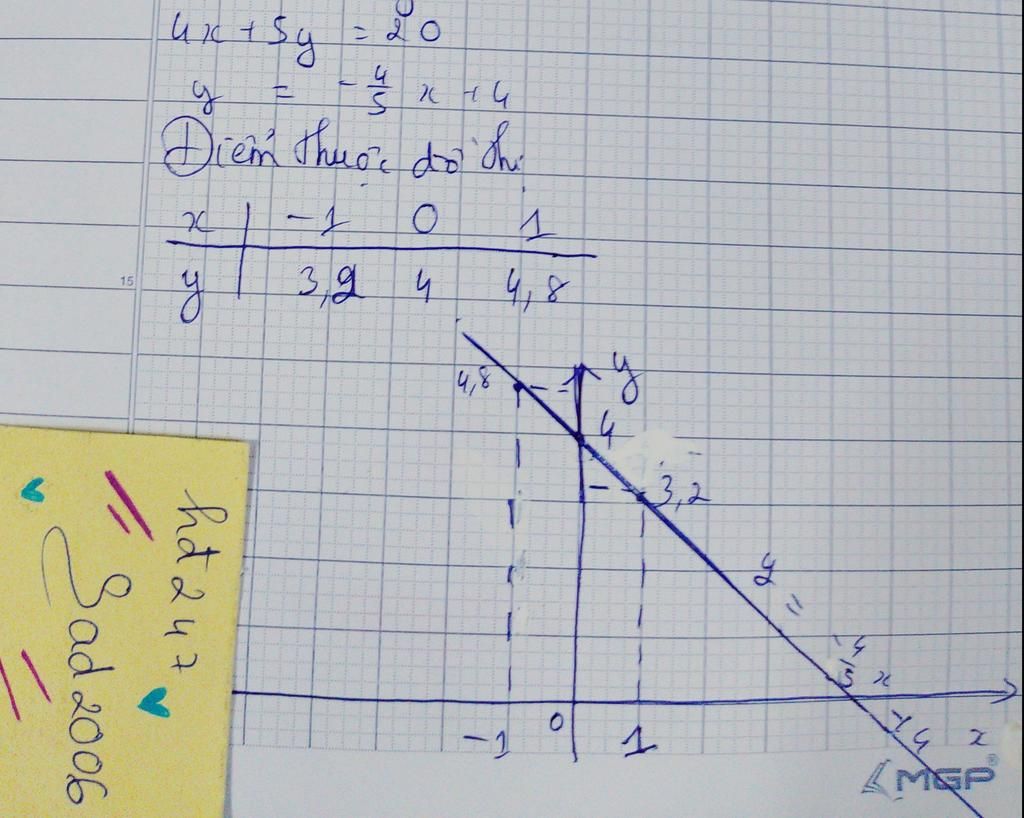 4x + 5y = 20
y = -4/5 x + 4
Điểm thuộc đồ thị
x | -1 0 1
y | 3,2 4 4,8
15
4,8
y
4
3,2
y = -4/5 x + 4
-1 0 1 x
MGP®
hđ 247
Sad2006